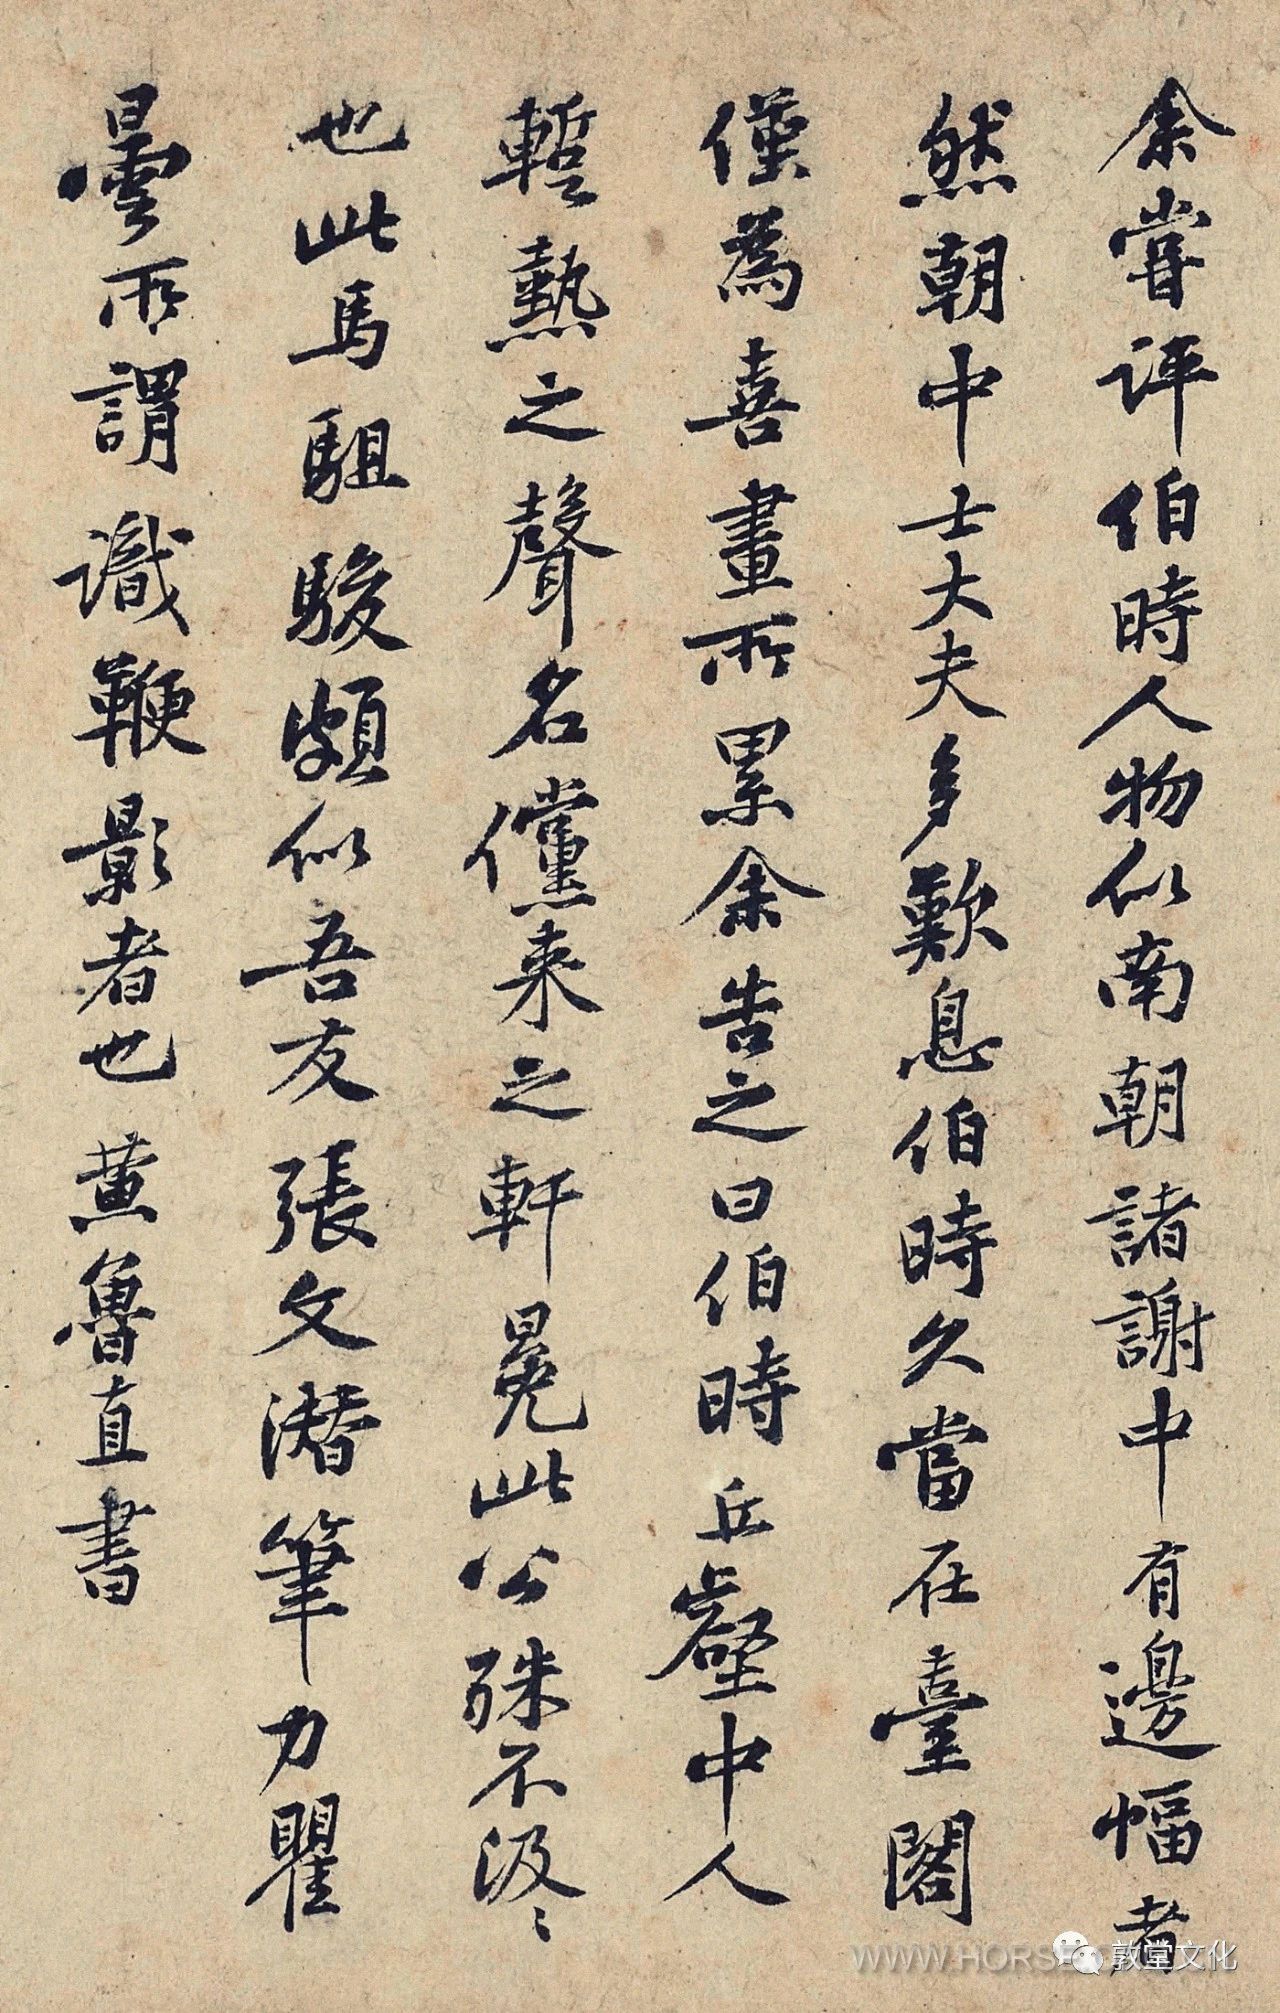 余嘗評伯時人物似南朝諸謝中有邊幅者
然朝中士大夫多歎息伯時久當在臺閣
僅為喜畫所累余告之曰伯時丘壑中人
暫熱之聲名儻来之軒冕此公殊不汲〻
也此馬駔駿頗似吾友張文潛筆力瞿
曇所謂識鞭影者也黄魯直書
WWW.HORSE
敦堂文化